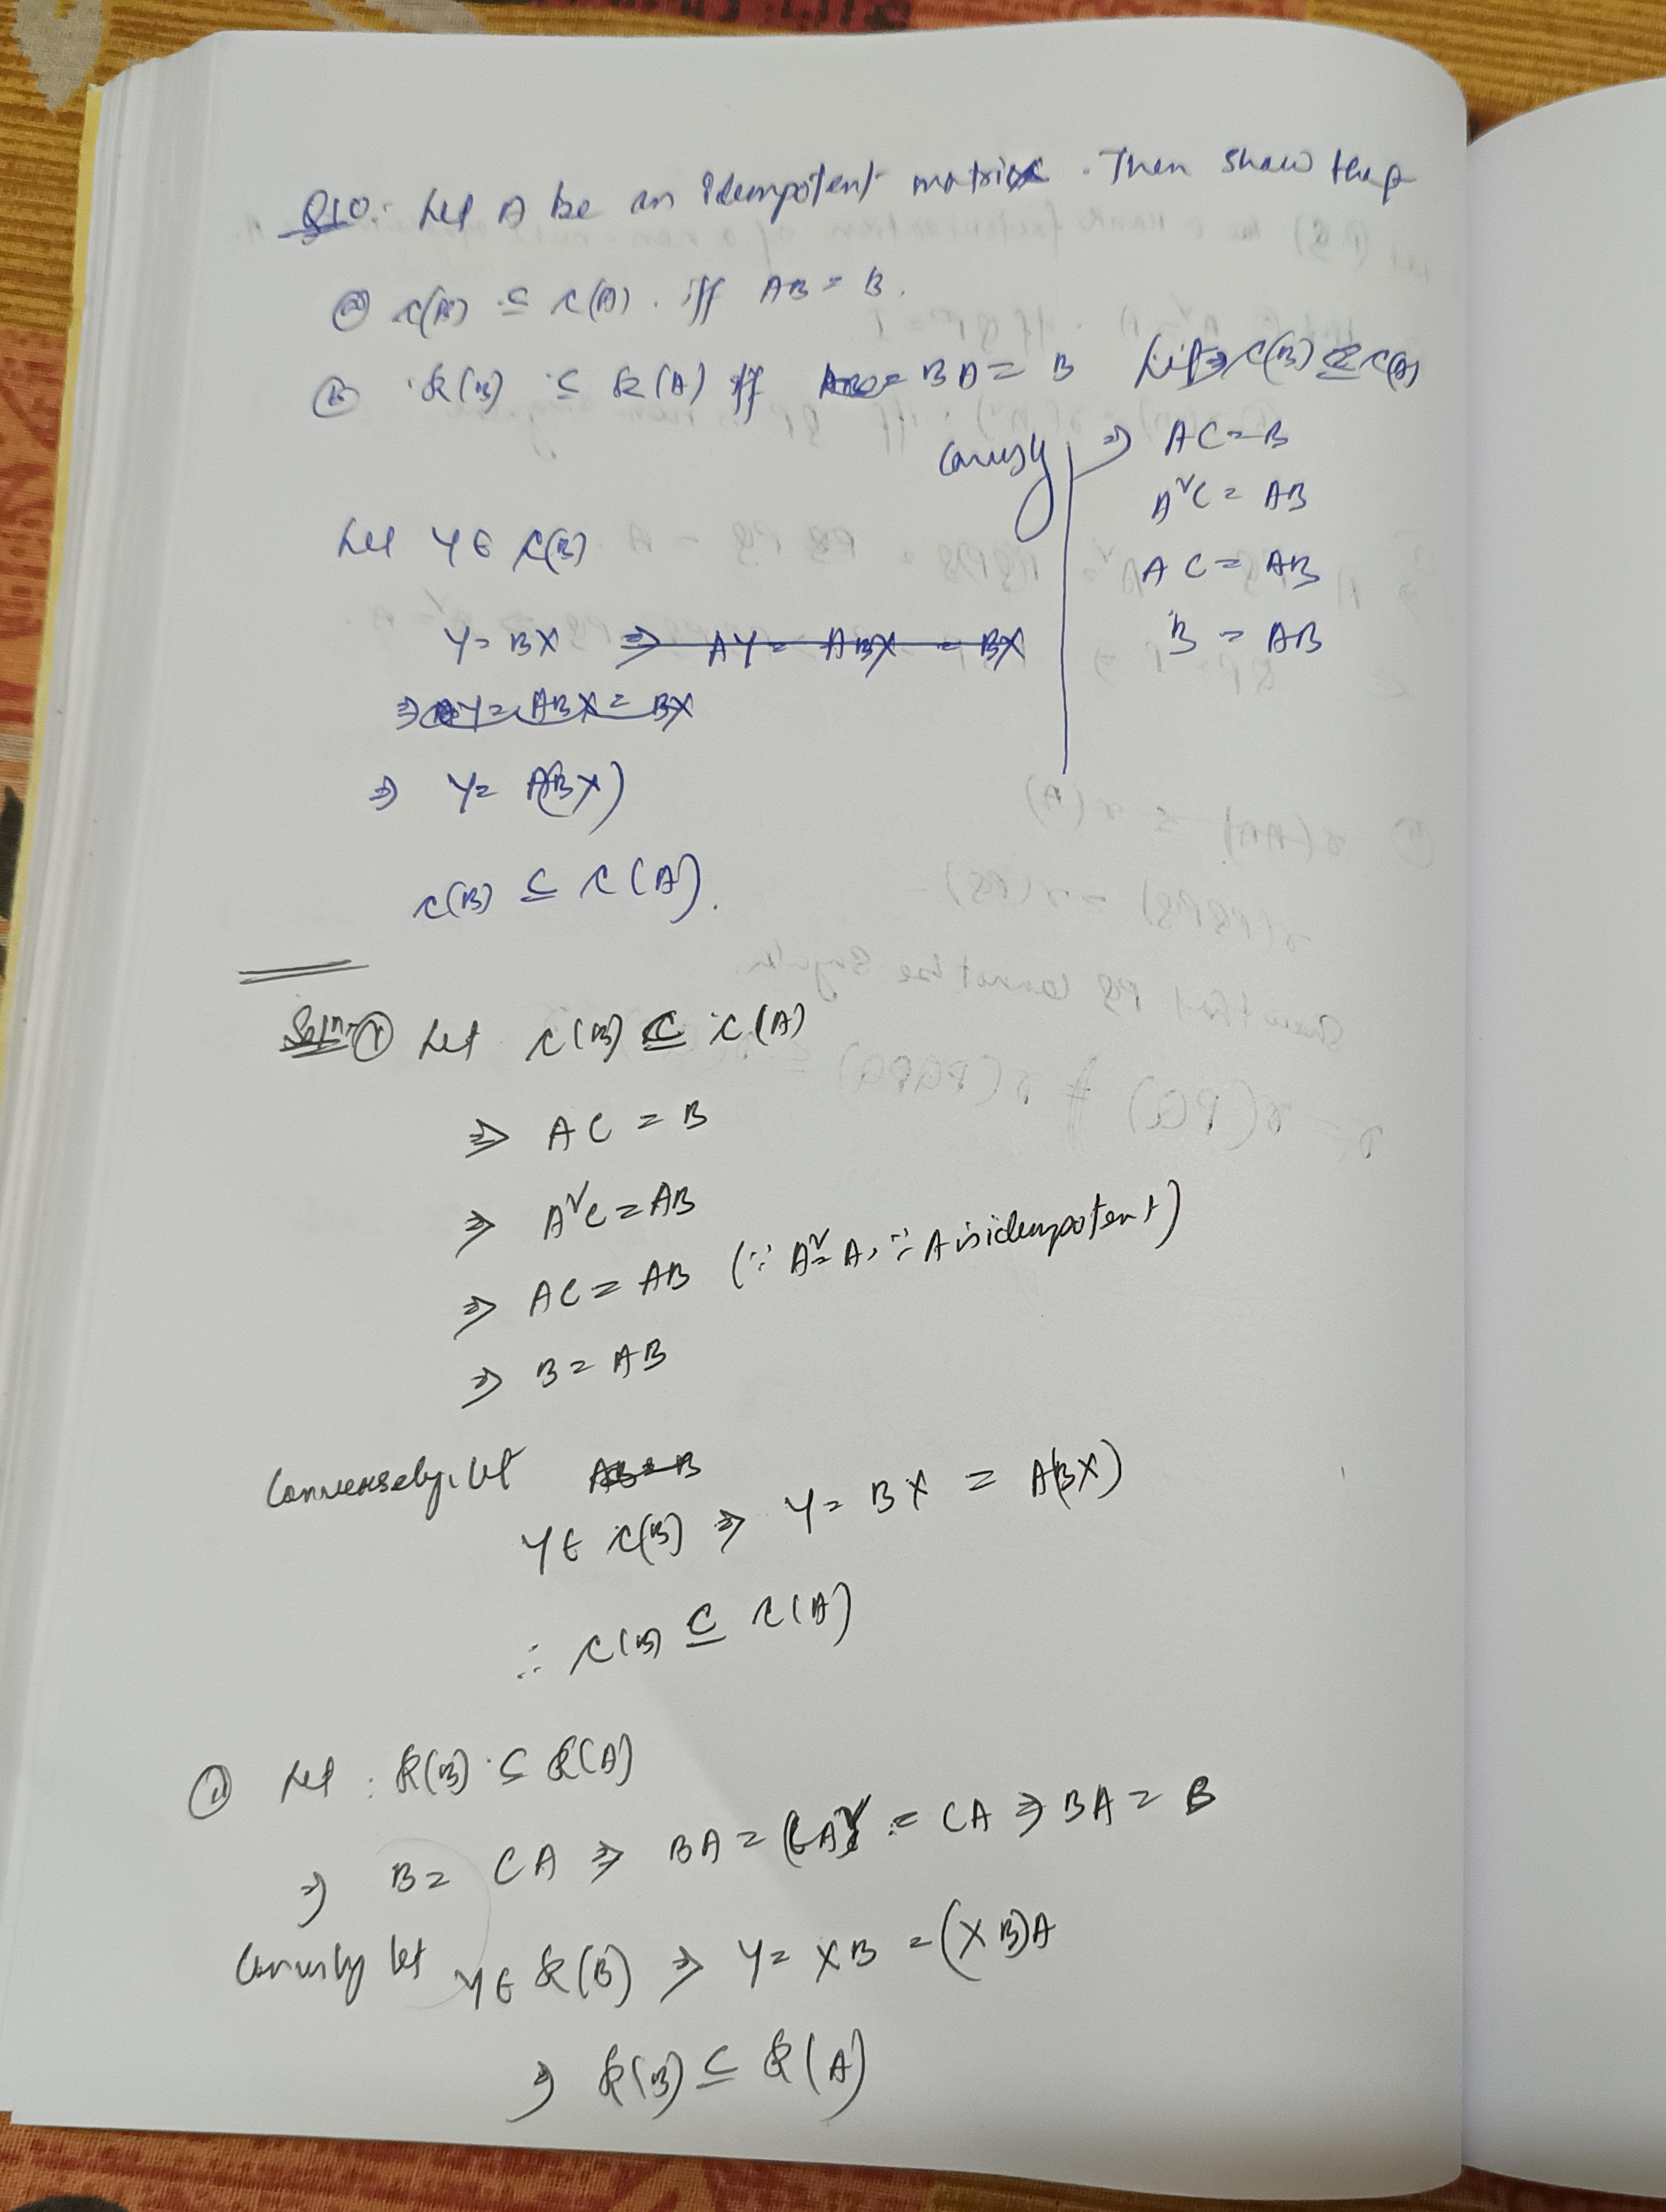 Q10.- Let A be an idempotent matrix. Then show that
(a) C(B) ⊆ C(A). iff AB = B.
(b) R(B) ⊆ R(A) iff BA = B
Let C(B) ⊆ C(A)
⇒ AC = B
A²C = AB
AC = AB
B = AB
Let Y ∈ C(B)
Y = BX ⇒ AY = ABX = BX
⇒ AY = ABX = BX
⇒ Y = A(BX)
C(B) ⊆ C(A).
Soln:- (i) Let C(B) ⊆ C(A)
⇒ AC = B
⇒ A²C = AB
⇒ AC = AB (∵ A² = A, ∵ A is idempotent)
⇒ B = AB
Conversely, let AB = B
Y ∈ C(B) ⇒ Y = BX = A(BX)
∴ C(B) ⊆ C(A)
(ii) Let R(B) ⊆ R(A)
⇒ B = CA ⇒ BA = CA² = CA ⇒ BA = B
let Y ∈ R(B) ⇒ Y = XB = (XB)A
⇒ R(B) ⊆ R(A)